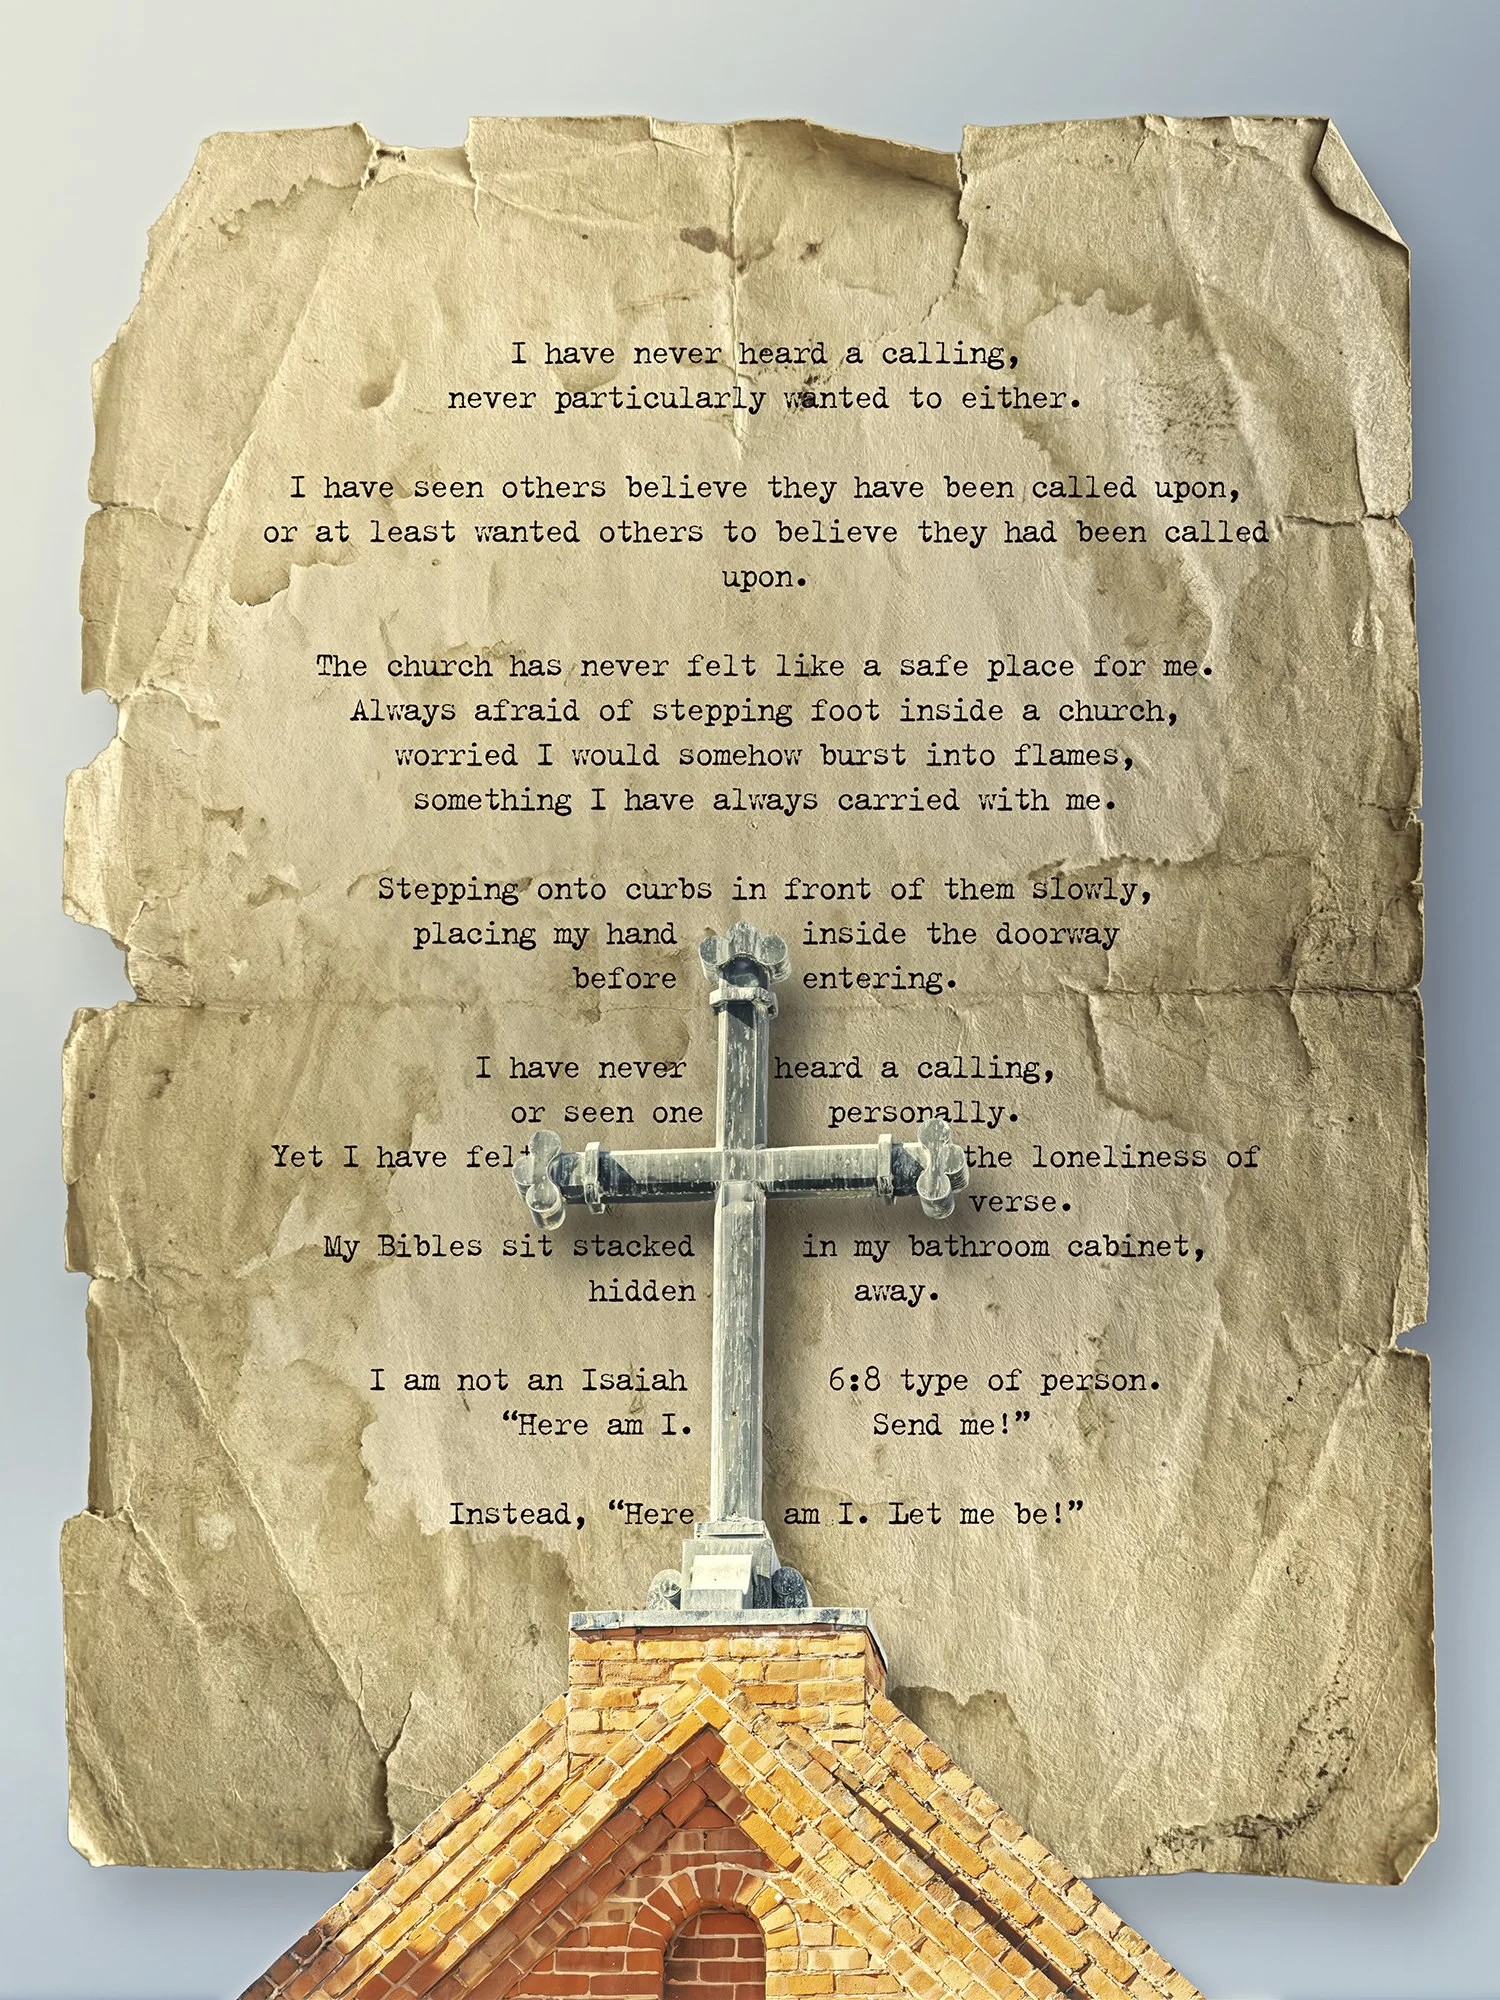 I have never heard a calling,
never particularly wanted to either.
I have seen others believe they have been called upon,
or at least wanted others to believe they had been called
upon.
The church has never felt like a safe place for me.
Always afraid of stepping foot inside a church,
worried I would somehow burst into flames,
something I have always carried with me.
Stepping onto curbs in front of them slowly,
placing my hand inside the doorway
before entering.
I have never heard a calling,
or seen one personally.
Yet I have felt the loneliness of
verse.
My Bibles sit stacked in my bathroom cabinet,
hidden away.
I am not an Isaiah 6:8 type of person.
“Here am I. Send me!”
Instead, “Here am I. Let me be!”